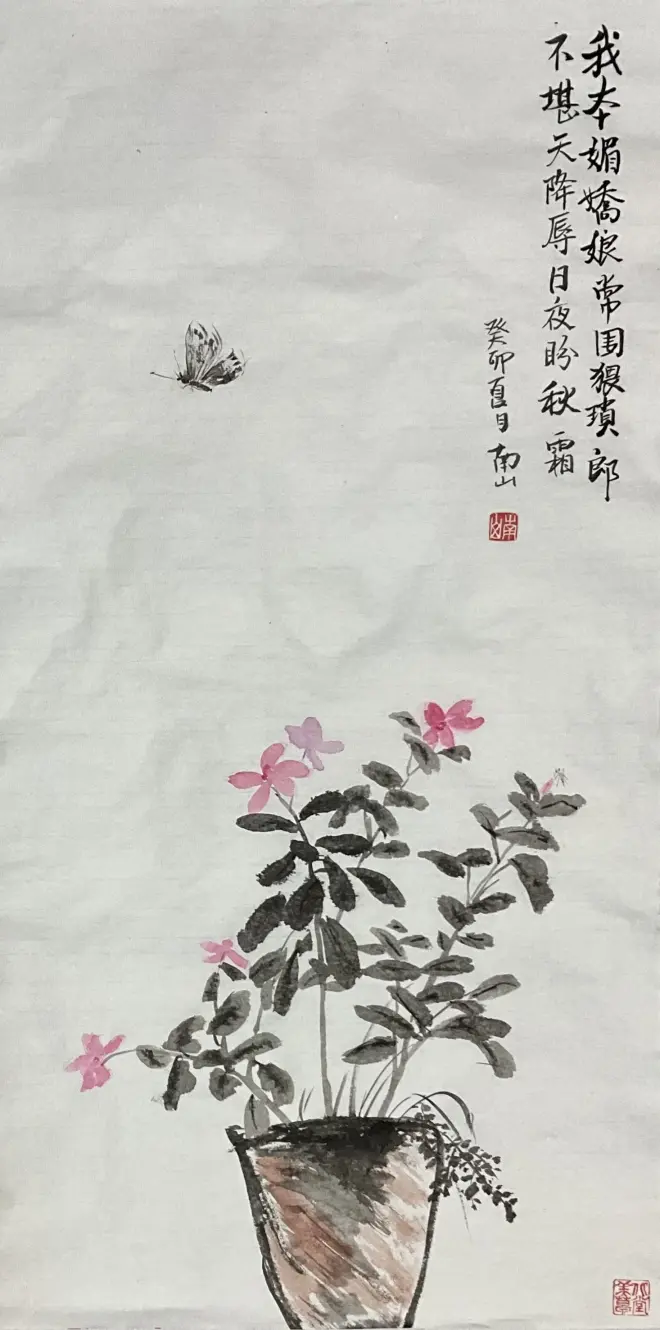 我本媚嬌娘常围猥琐郎
不堪天降辱日夜盼秋霜
癸卯夏日南山
南山